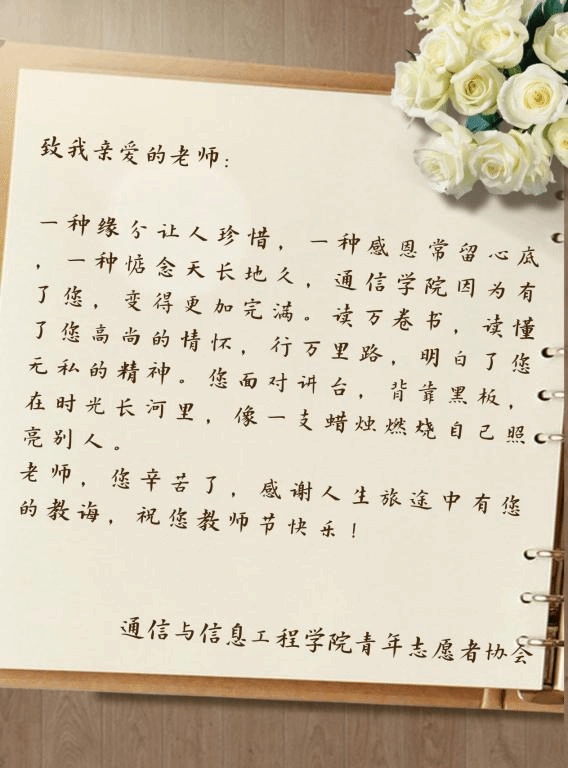 致我亲爱的老师：
一种缘分让人珍惜，一种感恩常留心底
，一种惦念天长地久，通信学院因为有
了您，变得更加完满。读万卷书，读懂
了您高尚的情怀，行万里路，明白了您
无私的精神。您面对讲台，背靠黑板，
在时光长河里，像一支蜡烛燃烧自己照
亮别人。
老师，您辛苦了，感谢人生旅途中有您
的教诲，祝您教师节快乐！
通信与信息工程学院青年志愿者协会